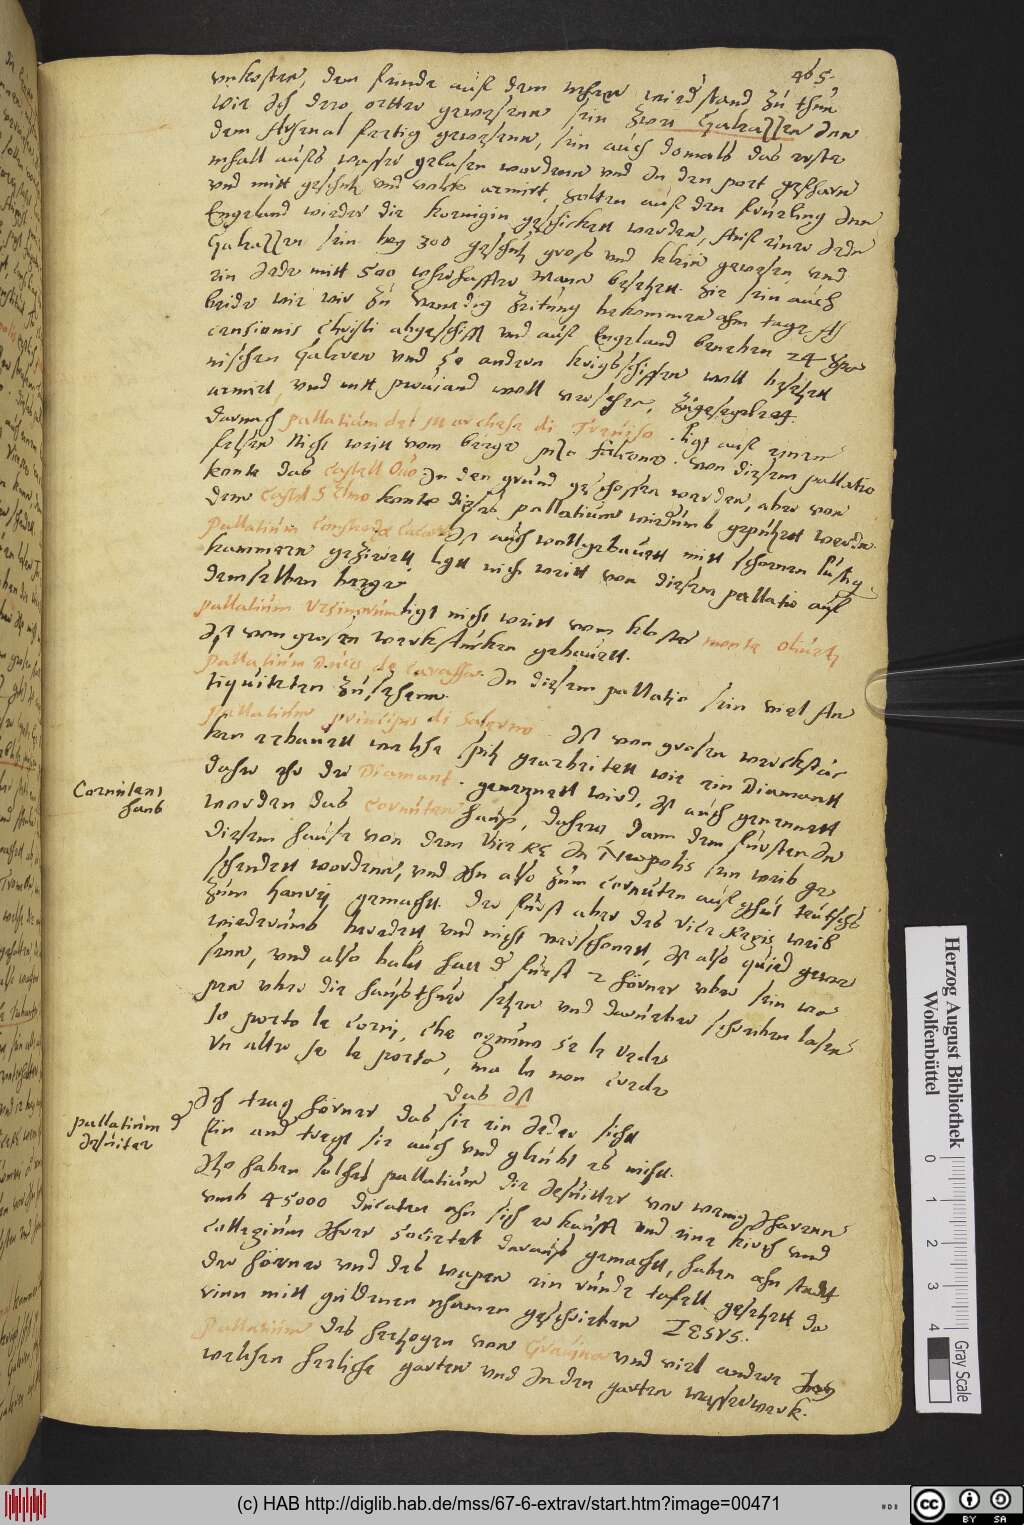 465.
vnkosten, dem feinde auß dem mehrer wiedstand zu thun
Wie Ich dero ortter gewesenn sein zwen Galeazzen Inn
dem Arsenal fertig gewesenn, sein auch domals das erste
mhall aufs wasser gelasen wordenn vnd In den port gefharn
vnd mitt geschutz vnd volck armirt, solten auf den fruling Inn
Engeland wieder die koenigin geschicket werden, Auf einer Jeden
Galeazzen sein bey 300 geschutz groß vnd klein gewesen vnd
ein Jede mitt 500 whehafften Mann besetzen. Die sein auch
beide wie wir zu Venedig Zeitung bekommen ahm tage As
censionis Christi abgeschifft vnd auf Engeland beneben 24
nischen Galeren vnd andern krigsschiffen woll besetzett
armirt, vnd mitt proviand woll versehen, zugesegeltt.
Darnach pallatium del Marchese di Treviso. ligt auf einem
felsen Nicht weitt vom berge Falcone. Von diesem pallatio
konte das Castell Ovo In den grund geschossen werden, aber von
dem Castel S Elmo konte dieses pallatium wiedrumb geputzet werden.
Pallatium Ist auch wollgebauett mitt schoenen lustig
kammern gezierett, ligtt nich weitt von diesem pallatio auf
demselben berge
pallatium Vrsinorum ligt nicht weitt vom kloster monte oliueti
Ist von grosen werkstucken gebauett.
pallatium Ducis de Caraffa. In diesem pallatio sein viel An
tiquiteten zusehenn.
Pallatium principis di Salerno. Ist von grosen werckstuc
ken erbauett welche spitz gearbeitett wie ein Diamantt
daher ehr der Diamant genennett wird, Ist auch genennett
worden das Cornuten hauß, daherr dann dem fursten In
diesem hause von dem Vice Re In Neapolis sein weib ge
schendett wordenn, vnd Ihn also zum cornuten auf guht teutsch
zum hanrej gemacht. Der fürst aber des Vice Regis weib
wiederumb beredett vnd nicht verschonett, Ist also quied gewe
senn, vnd also baldt hatt d fürst 2 hörner vber sein wa
pen vber die haußthuer setzen vnd darunter schreiben lasen
Io porto le corni, che ogniuno se le vede
Vn altro se le porta, ma le non crede
Das Ist
Ich trag hörner das sie ein Jeder sicht
Ein ander tregt sie auch vnd glaubt es nicht.
Itzo haben solches pallatium die Jesuitter vor wenig Jharenn
vmb 45000 ducaten ahn sich erkaufft vnd eine kirch vnd
collegium Ihrer Societet daraus gemachtt, haben ahn stadt
der hörner vnd des wapen ein runde tafell gesetzett da
rinn mitt guldenen nhamen geschrieben IESVS.
Pallatium des hertzogen von Gravina vnd viel andere Inn
welchen herliche garten vnd In den garten wasserwerk.
Cornutens
haus
pallatium d
Jesuiter
Herzog August Bibliothek
Wolfenbüttel
0 1 2 3 4
Gray Scale
(c) HAB http://diglib.hab.de/mss/67-6-extrav/start.htm?image=00471
cc BY SA